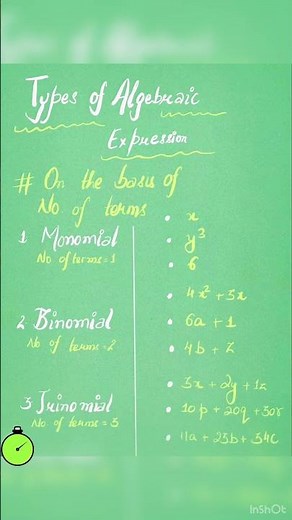 Types of Algebraic
Expression
# On the basis of
No of terms
• x
1 Monomial
No of terms = 1
• y³
• 6
• 4x² + 5x
2 Binomial
No of terms = 2
• 6a + 1
• 4b + z
3 Trinomial
No of terms = 3
• 3x + 2y + 1z
• 10p + 20q + 30r
• 11a + 23b + 34c
InShOt